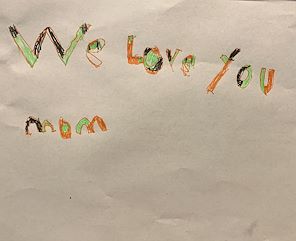 We Love You
mom